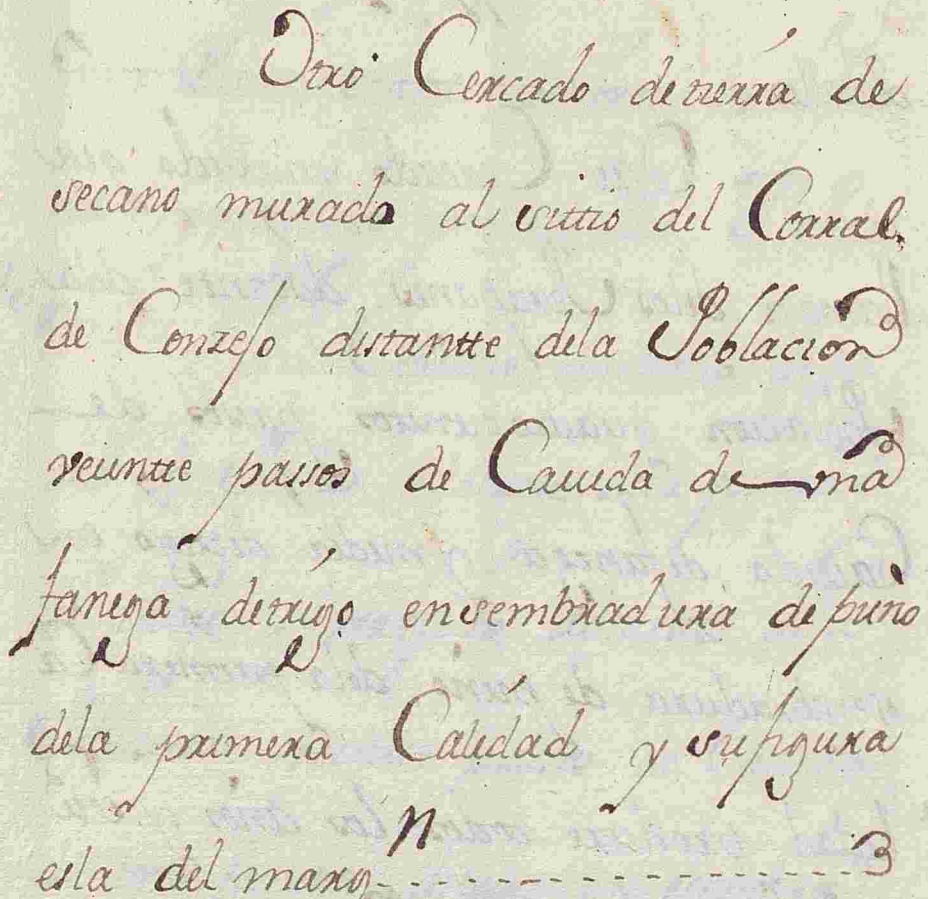 Otro Cercado de tierra de
secano murado al sittio del Corral
de Conzejo distantte dela Poblacion
veintte passos de Cauida de una
fanega de trigo en sembradura de puño
dela primera Calidad y su figura
es la del marg.n - - - - - - - - - - 3